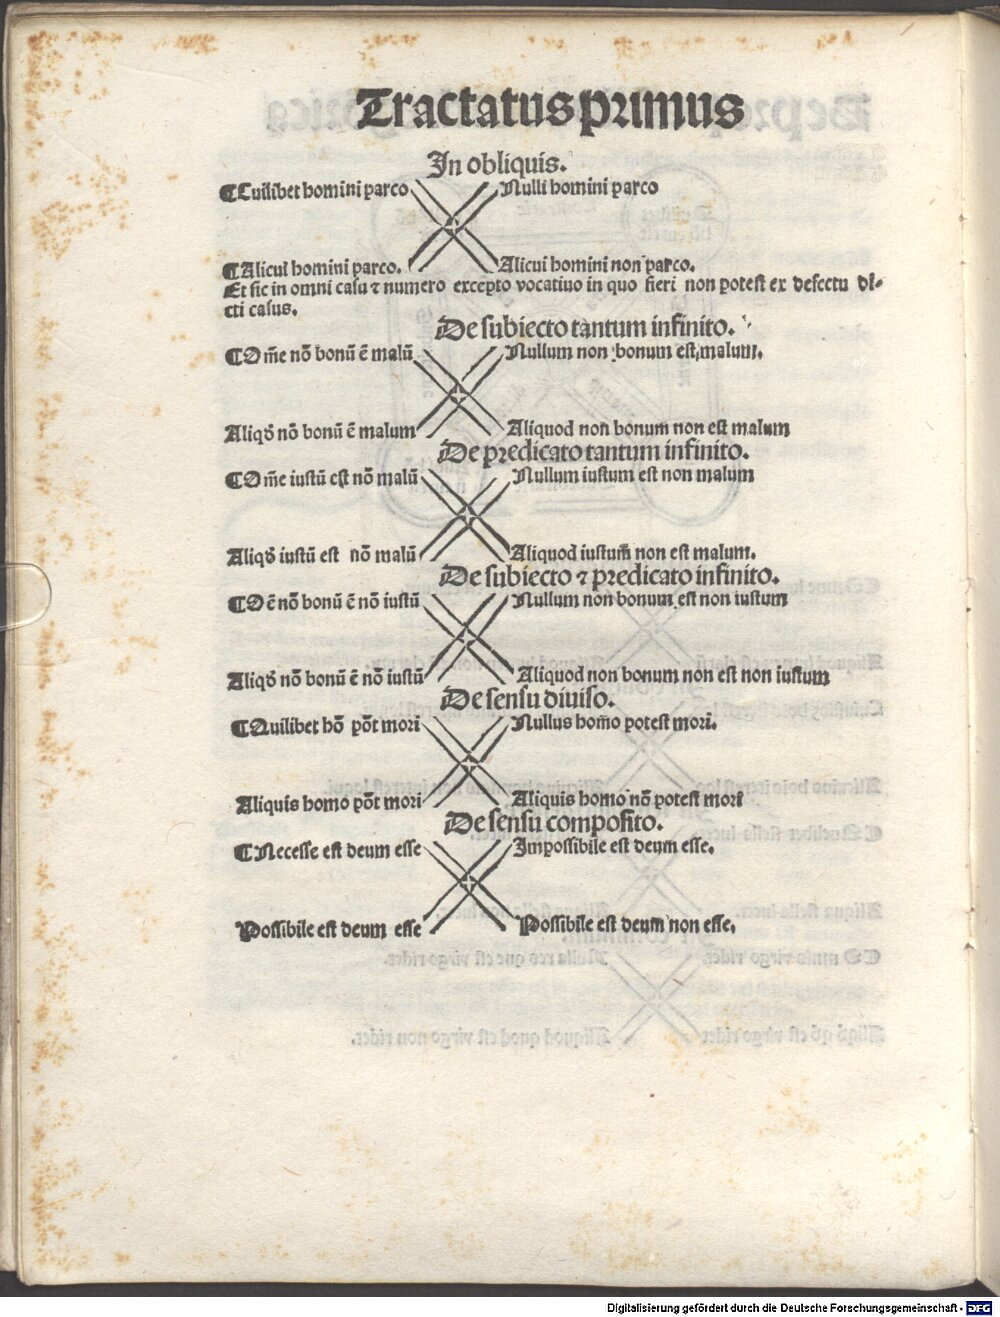 Tractatus primus
In obliquis.
¶Cuilibet homini parco Nulli homini parco
¶Alicui homini parco. Alicui homini non parco.
Et sic in omni casu ⁊ numero excepto vocatiuo in quo fieri non potest ex defectu di-
cti casus.
De subiecto tantum infinito.
¶Om̄e nō bonū ē malū Nullum non bonum est malum.
Aliqḋ nō bonū ē malum Aliquod non bonum non est malum
De predicato tantum infinito.
¶Om̄e iustū est nō malū Nullum iustum est non malum
Aliqḋ iustū est nō malū Aliquod iustum non est malum.
De subiecto ⁊ predicato infinito.
¶Oē nō bonū ē nō iustū Nullum non bonum est non iustum
Aliqḋ nō bonū ē nō iustū Aliquod non bonum non est non iustum
De sensu diuiso.
¶Quilibet hō pōt mori Nullus homo potest mori.
Aliquis homo pōt mori Aliquis homo nō potest mori
De sensu composito.
¶Necesse est deum esse Impossibile est deum esse.
Possibile est deum esse Possibile est deum non esse.
Digitalisierung gefördert durch die Deutsche Forschungsgemeinschaft - DFG